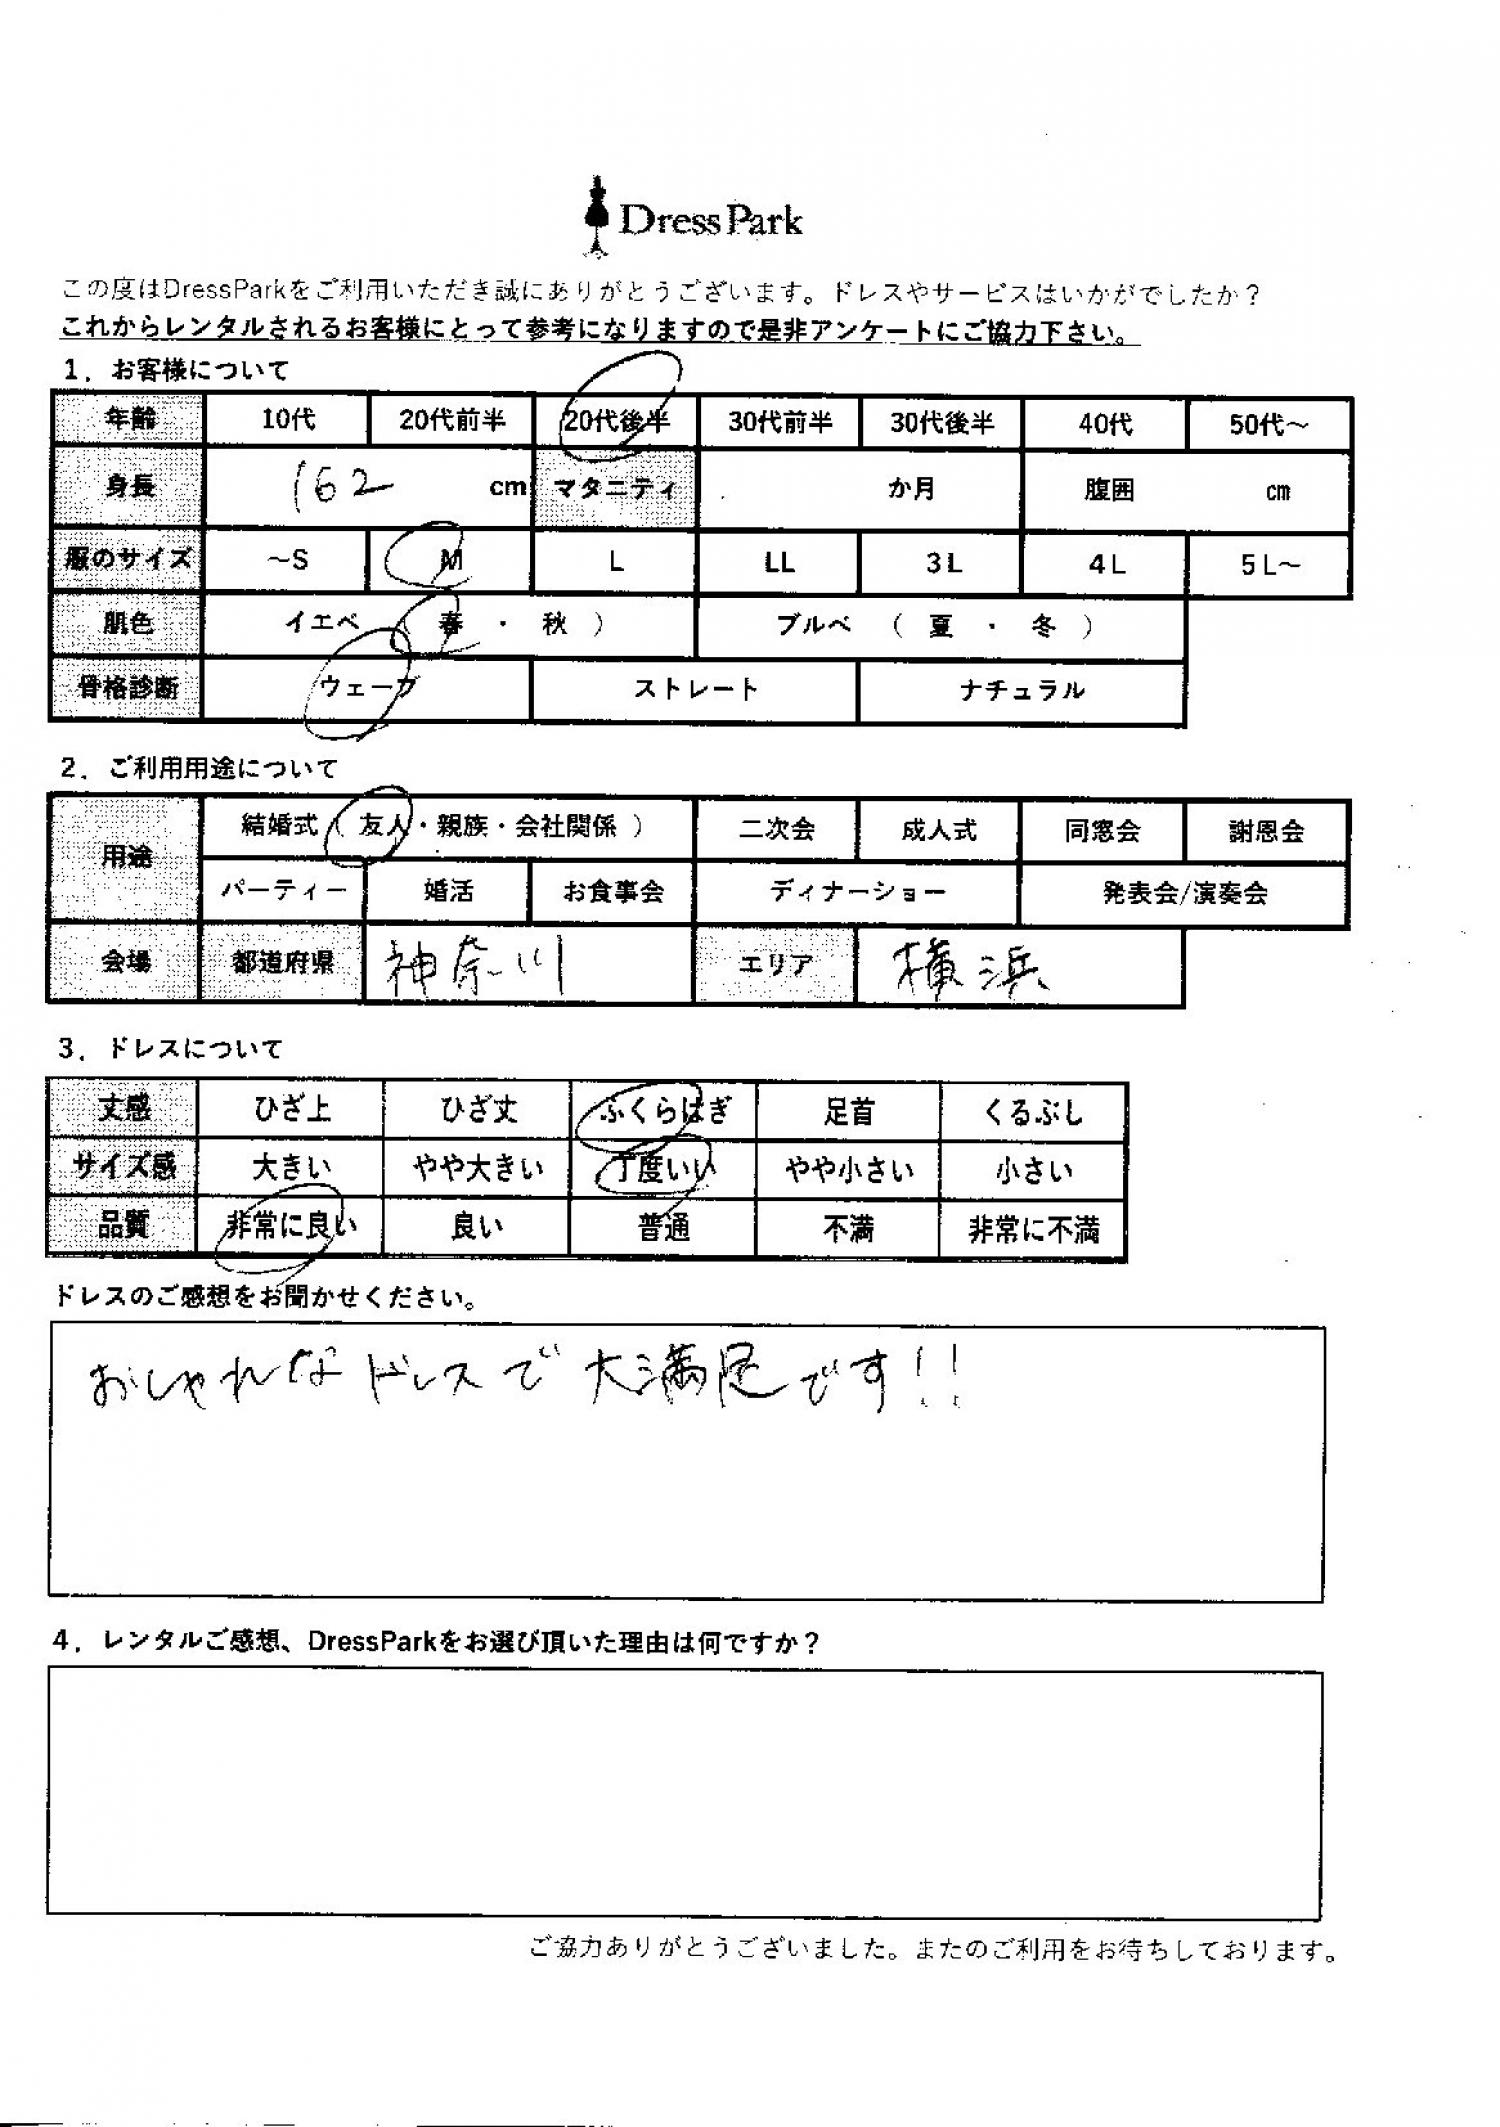 Dress Park
この度はDressParkをご利用いただき誠にありがとうございます。ドレスやサービスはいかがでしたか？
これからレンタルされるお客様にとって参考になりますので是非アンケートにご協力下さい。
1．お客様について
年齢 10代 20代前半 20代後半 30代前半 30代後半 40代 50代～
身長 162 cm マタニティ か月 腹囲 cm
服のサイズ ～S M L LL 3L 4L 5L～
肌色 イエベ 春 ・ 秋 ） ブルベ （ 夏 ・ 冬 ）
骨格診断 ウェーブ ストレート ナチュラル
2．ご利用用途について
用途 結婚式（ 友人・親族・会社関係 ） 二次会 成人式 同窓会 謝恩会
パーティー 婚活 お食事会 ディナーショー 発表会/演奏会
会場 都道府県 神奈川 エリア 横浜
3．ドレスについて
丈感 ひざ上 ひざ丈 ふくらはぎ 足首 くるぶし
サイズ感 大きい やや大きい 丁度いい やや小さい 小さい
品質 非常に良い 良い 普通 不満 非常に不満
ドレスのご感想をお聞かせください。
おしゃれなドレスで大満足です!!
4．レンタルご感想、DressParkをお選び頂いた理由は何ですか？
ご協力ありがとうございました。またのご利用をお待ちしております。